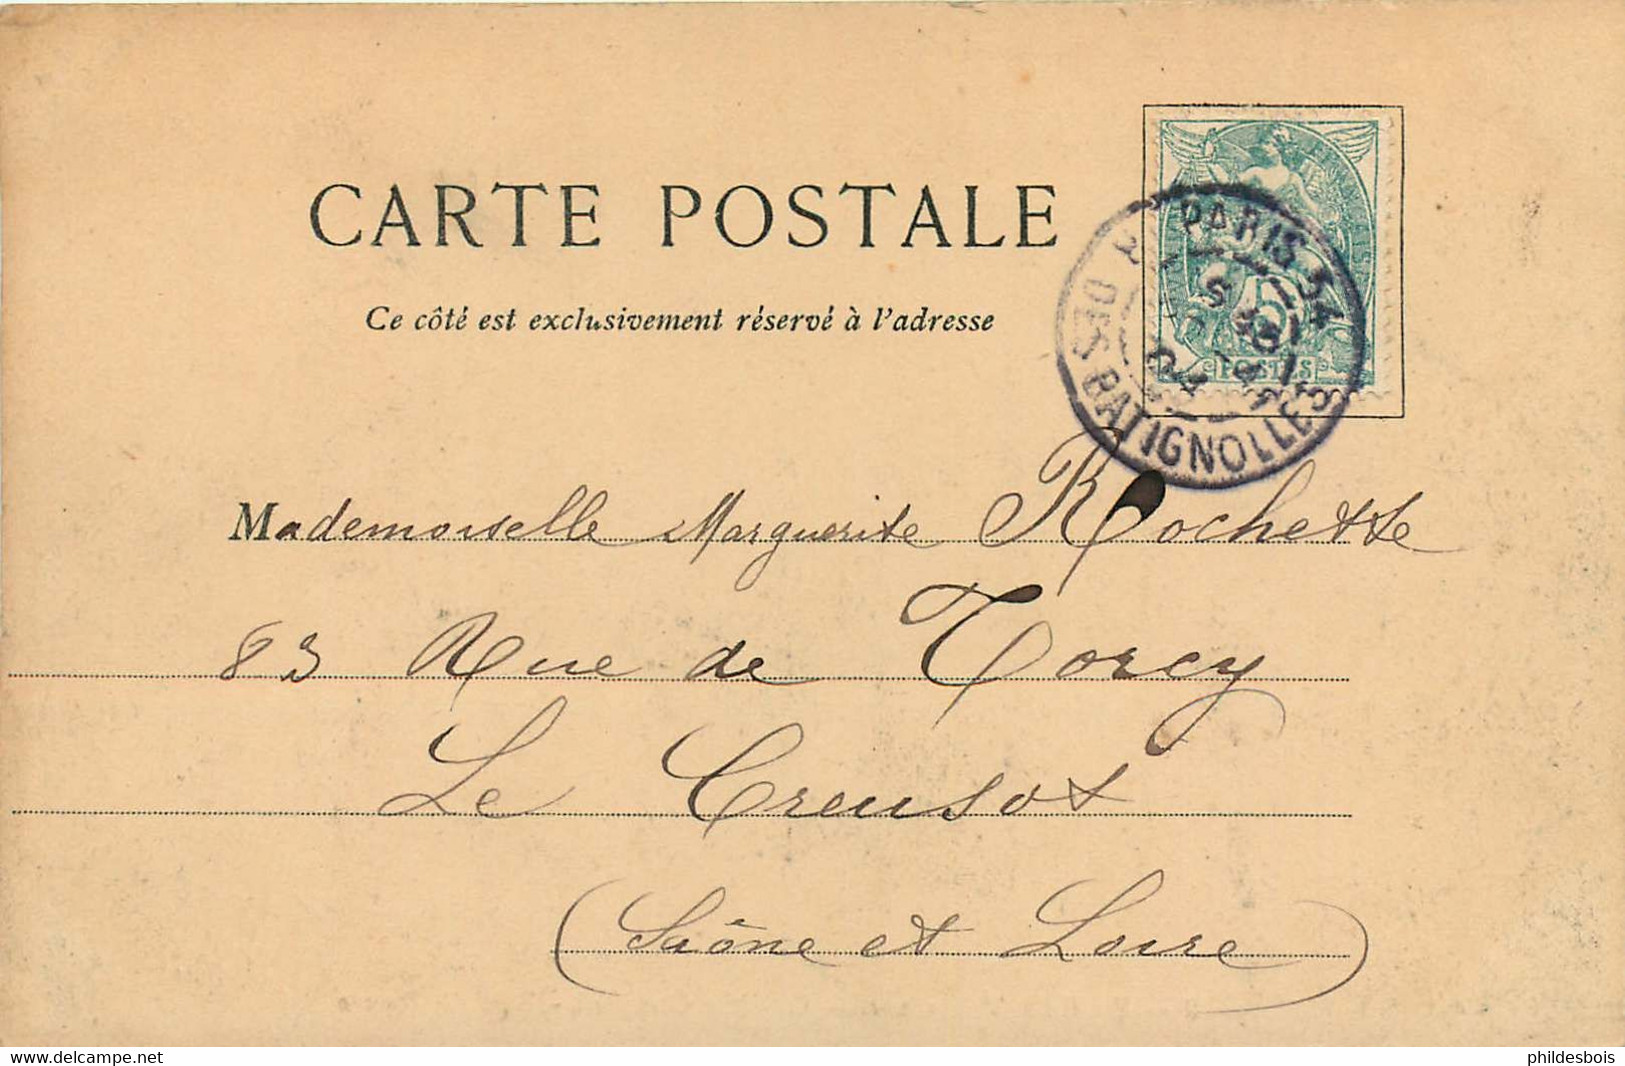 CARTE POSTALE
Ce côté est exclusivement réservé à l'adresse
PARIS 34
R. DES BATIGNOLLES
5
POSTES
Mademoiselle Marguerite Rochette
83 Rue de Torcy
Le Creusot
(Saône et Loire)
www.delcampe.net
phildesbois